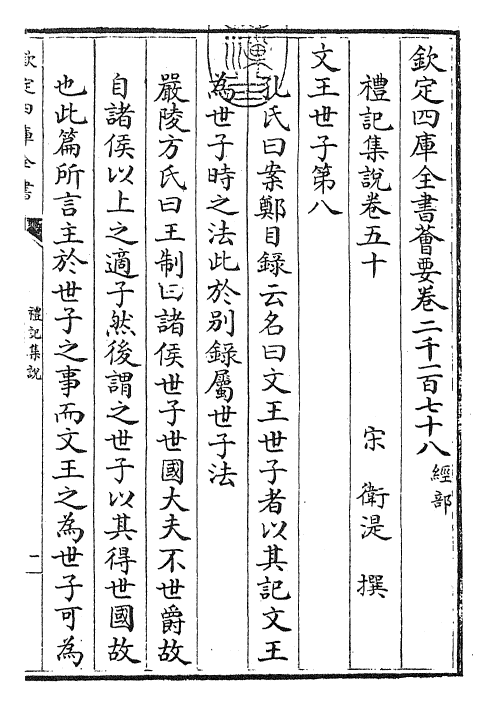 欽定四庫全書薈要卷二千一百七十八 經部
禮記集說卷五十
宋 衛湜 撰
文王世子第八
孔氏曰案鄭目錄云名曰文王世子者以其記文王
為世子時之法此於別錄屬世子法
嚴陵方氏曰王制曰諸侯世子世國大夫不世爵故
自諸侯以上之適子然後謂之世子以其得世國故
也此篇所言主於世子之事而文王之為世子可為
欽定四庫全書
禮記集說
一